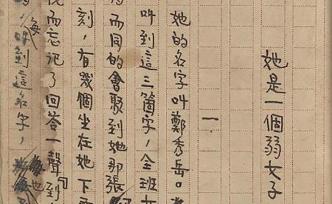 她是一個弱女子
一
她的名字叫鄭秀岳。
叫到這三箇字,全班
而同的會聚到她那張
刻,有幾個坐在她下
而忘記了回答一聲「到
叫到這名字,